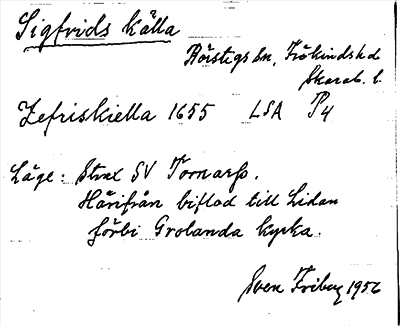 Sigfrids källa
Börstigs sn, Frökindshd
Skarab. l.
Zefriskiella 1655 LSA P4
Läge: Strax SV Tornarp.
Härifrån biflod till Lidan
förbi Grolanda kyrka.
Sven Friberg 1956